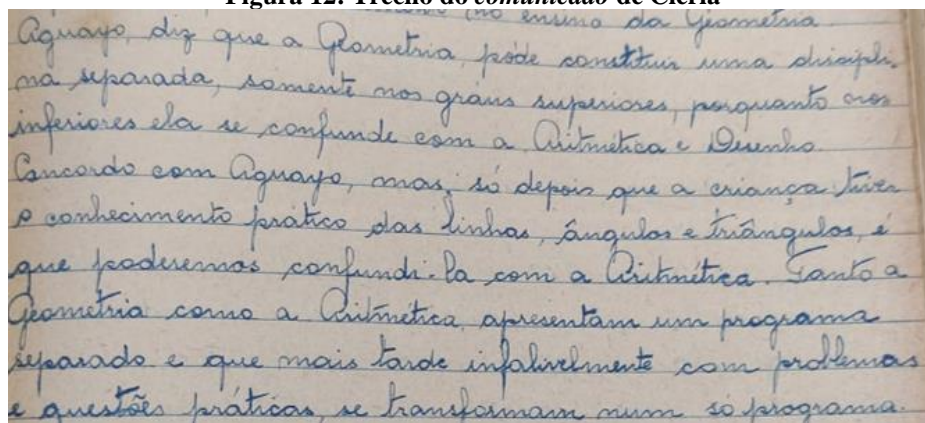 Figura 12: Trecho do comunicado de Cleria
no ensino da Geometria
Aguayo, diz que a Geometria, póde constituir uma discipli-
na separada, somente nos gráus superiores, porquanto nos
inferiores ela se confunde com a Aritmética e Desenho.
Concordo com Aguayo, mas, só depois que a criança tiver
o conhecimento prático das linhas, ângulos e triângulos, é
que poderemos confundi-la com a Aritmética. Tanto a
Geometria como a Aritmética, apresentam um programa
separado e que mais tarde infalivelmente com problemas
e questões práticas, se transformam num só programa.